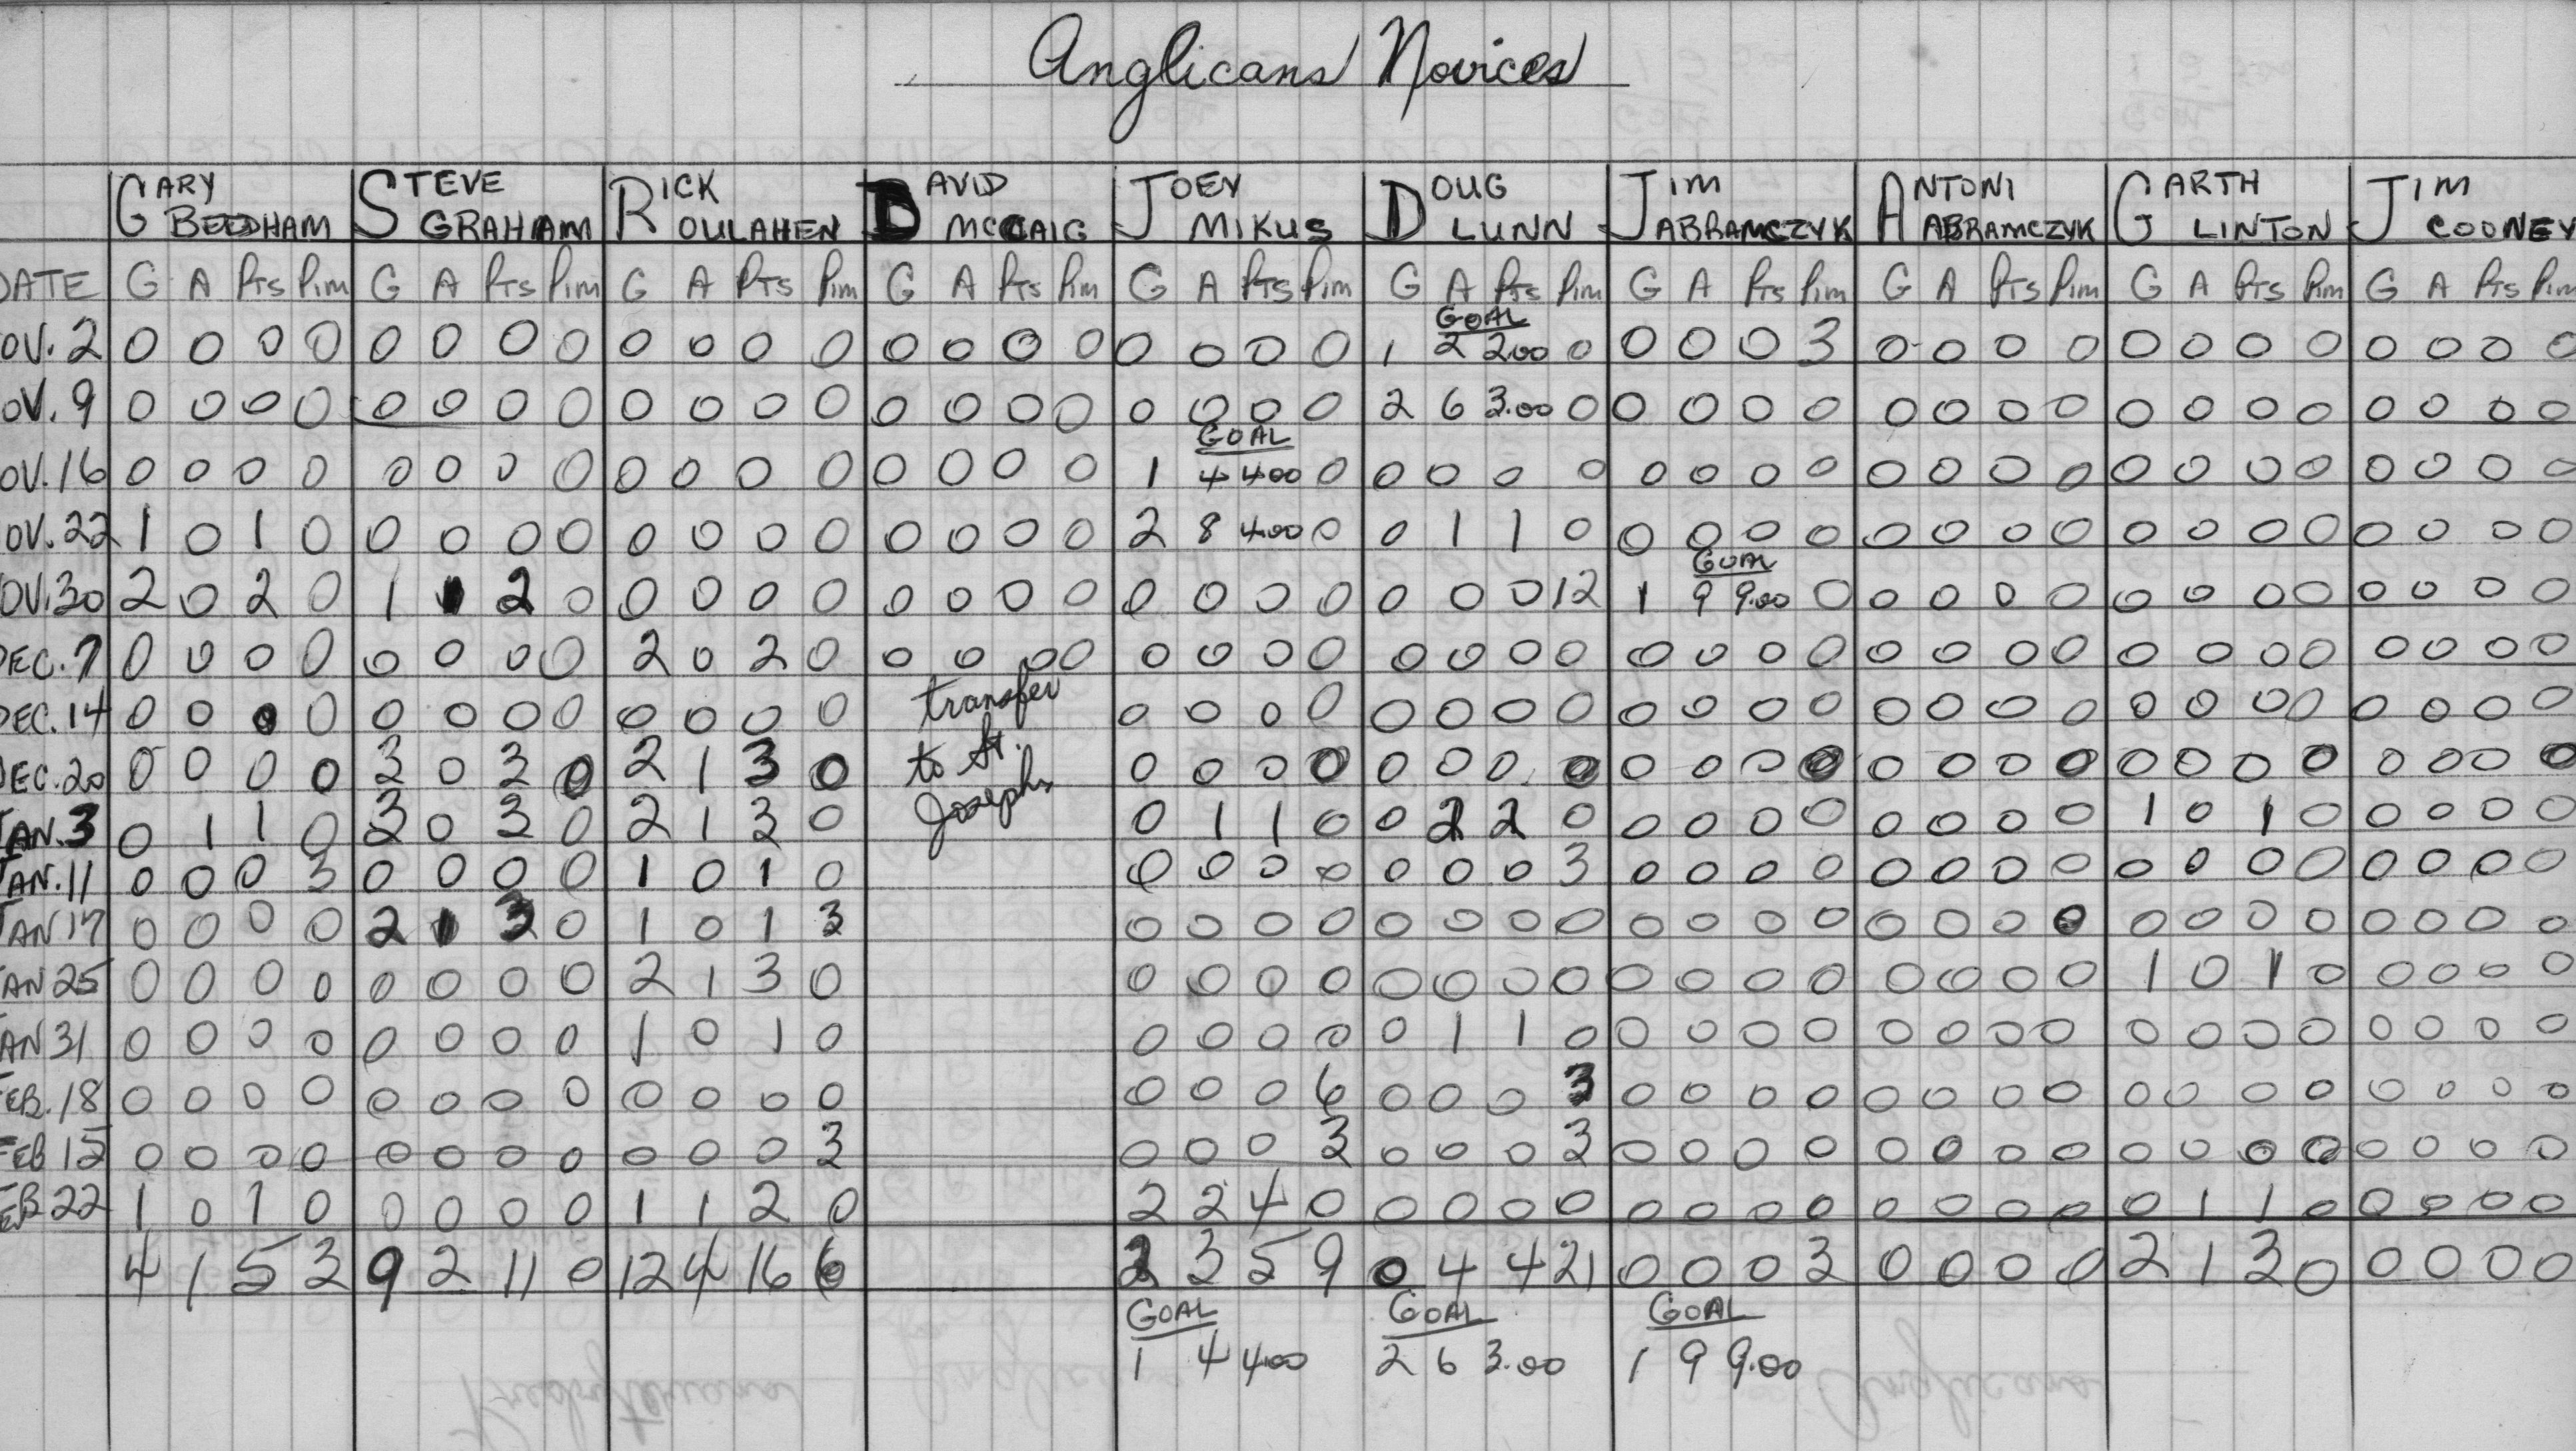 Anglicans Novices
GARY BEEDHAM STEVE GRAHAM RICK OULAHEN DAVID MCCAIG JOEY MIKUS DOUG LUNN JIM ABRAMCZYK ANTONI ABRAMCZYK GARTH LINTON JIM COONEY
DATE G A Pts Pim G A Pts Pim G A Pts Pim G A Pts Pim G A Pts Pim G A Pts Pim G A Pts Pim G A Pts Pim G A Pts Pim G A Pts Pim
GOAL
OV. 2 0 0 0 0 0 0 0 0 0 0 0 0 0 0 0 0 0 0 0 0 1 2 2.00 0 0 0 0 3 0 0 0 0 0 0 0 0 0 0 0 0
OV. 9 0 0 0 0 0 0 0 0 0 0 0 0 0 0 0 0 0 0 0 0 2 6 3.00 0 0 0 0 0 0 0 0 0 0 0 0 0 0 0 0 0
GOAL
OV. 16 0 0 0 0 0 0 0 0 0 0 0 0 0 0 0 0 1 4 4.00 0 0 0 0 0 0 0 0 0 0 0 0 0 0 0 0 0 0 0 0 0
OV. 22 1 0 1 0 0 0 0 0 0 0 0 0 0 0 0 0 2 8 4.00 0 0 1 1 0 0 0 0 0 0 0 0 0 0 0 0 0 0 0 0 0
GOAL
OV. 30 2 0 2 0 1 1 2 0 0 0 0 0 0 0 0 0 0 0 0 0 0 0 0 12 1 9 9.00 0 0 0 0 0 0 0 0 0 0 0 0 0
DEC. 7 0 0 0 0 0 0 0 0 2 0 2 0 0 0 0 0 0 0 0 0 0 0 0 0 0 0 0 0 0 0 0 0 0 0 0 0 0 0 0 0
DEC. 14 0 0 0 0 0 0 0 0 0 0 0 0 transfer 0 0 0 0 0 0 0 0 0 0 0 0 0 0 0 0 0 0 0 0 0 0 0 0
DEC. 20 0 0 0 0 3 0 3 0 2 1 3 0 to St. 0 0 0 0 0 0 0 0 0 0 0 0 0 0 0 0 0 0 0 0 0 0 0 0
JAN. 3 0 1 1 0 3 0 3 0 2 1 3 0 Josephs 0 1 1 0 0 2 2 0 0 0 0 0 0 0 0 0 1 0 1 0 0 0 0 0
JAN. 11 0 0 0 3 0 0 0 0 1 0 1 0 0 0 0 0 0 0 0 3 0 0 0 0 0 0 0 0 0 0 0 0 0 0 0 0
JAN 17 0 0 0 0 2 1 3 0 1 0 1 3 0 0 0 0 0 0 0 0 0 0 0 0 0 0 0 0 0 0 0 0 0 0 0 0
JAN 25 0 0 0 0 0 0 0 0 2 1 3 0 0 0 0 0 0 0 0 0 0 0 0 0 0 0 0 0 1 0 1 0 0 0 0 0
JAN 31 0 0 0 0 0 0 0 0 1 0 1 0 0 0 0 0 0 1 1 0 0 0 0 0 0 0 0 0 0 0 0 0 0 0 0 0
EB. 18 0 0 0 0 0 0 0 0 0 0 0 0 0 0 0 6 0 0 0 3 0 0 0 0 0 0 0 0 0 0 0 0 0 0 0 0
FEB 15 0 0 0 0 0 0 0 0 0 0 0 3 0 0 0 3 0 0 0 3 0 0 0 0 0 0 0 0 0 0 0 0 0 0 0 0
EB 22 1 0 1 0 0 0 0 0 1 1 2 0 2 2 4 0 0 0 0 0 0 0 0 0 0 0 0 0 0 1 1 0 0 0 0 0
4 1 5 3 9 2 11 0 12 4 16 6 2 3 5 9 0 4 4 21 0 0 0 3 0 0 0 0 2 1 3 0 0 0 0 0
GOAL GOAL GOAL
1 4 4.00 2 6 3.00 1 9 9.00